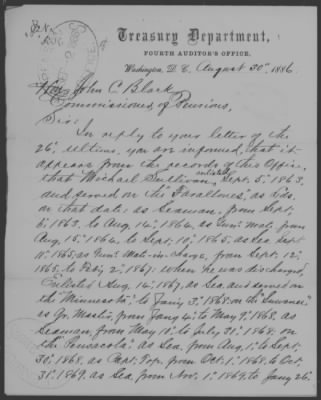 Treasury Department,
FOURTH AUDITOR'S OFFICE,
Washington, D. C. August 30th, 1886.
Hon. John C. Black
Commissioner of Pensions,
Sir:
In reply to your letter of the
26" ultimo, you are informed, that it
appears from the records of this Office,
that Michael Sullivan enlisted Sept. 5" 1863,
and served on the "Farallones," as Lds.
on that date: as Seaman, from Sept.
6" 1863, to Aug. 14" 1864, as Gunr. mat. from
Aug. 15" 1864, to Sept. 10" 1865, as Sea. Sept
11" 1865, as Gunr. Mate-in-charge, from Sept. 12"
1865, to Feby 2" 1867: when he was discharged.
Enlisted Aug. 14" 1867, as Sea. and served on
the "Minnesota," to Jany 3" 1868: on the "Suwanee"
as Qr. Master, from Jany 4" to May 9" 1868, as
Seaman, from May 10" to July 31" 1868: on
the "Pensacola" as Sea. from Aug. 1" to Sept.
30" 1868, as Capt. Top. from Oct. 1" 1868, to Oct.
31" 1869, as Sea. from Nov. 1" 1869, to Jany 26"